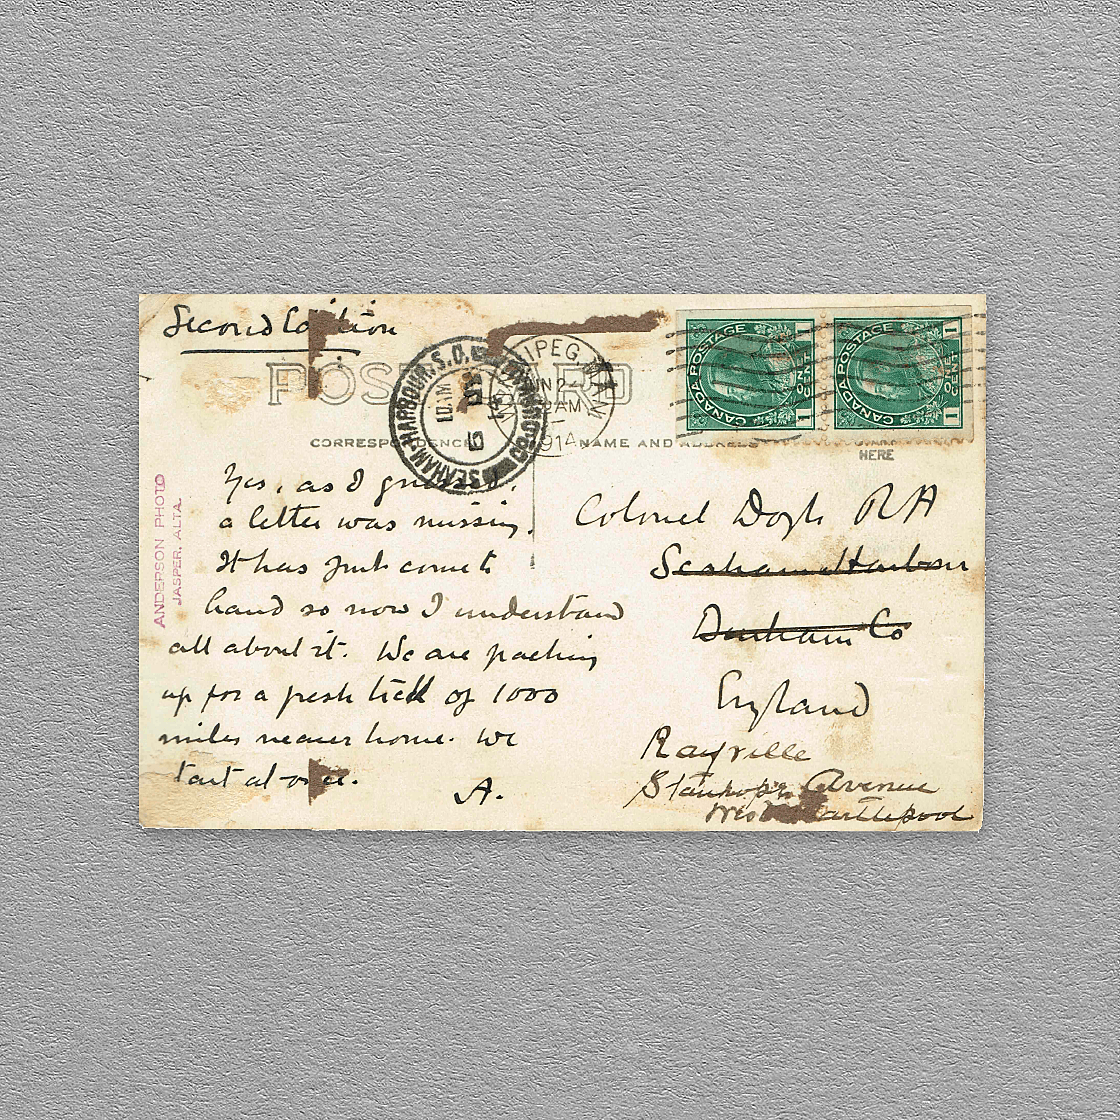 Second Edition
POST CARD
CORRESPONDENCE
NAME AND ADDRESS
HERE
SEAHAM-HARBOUR. S.O.
WINNIPEG, MAN.
JUN 2
AM
1914
CANADA POSTAGE
1 CENT 1
CANADA POSTAGE
1 CENT 1
ANDERSON PHOTO
JASPER, ALTA.
Yes, as I guessed,
a letter was missing.
It has just come to
hand so now I understand
all about it. We are packing
up for a fresh tick of 1000
miles nearer home. We
start at once.
A.
Colonel Doyle RA
Seaham Harbour
Durham Co
England
Rayville
Stanhope Avenue
West Hartlepool